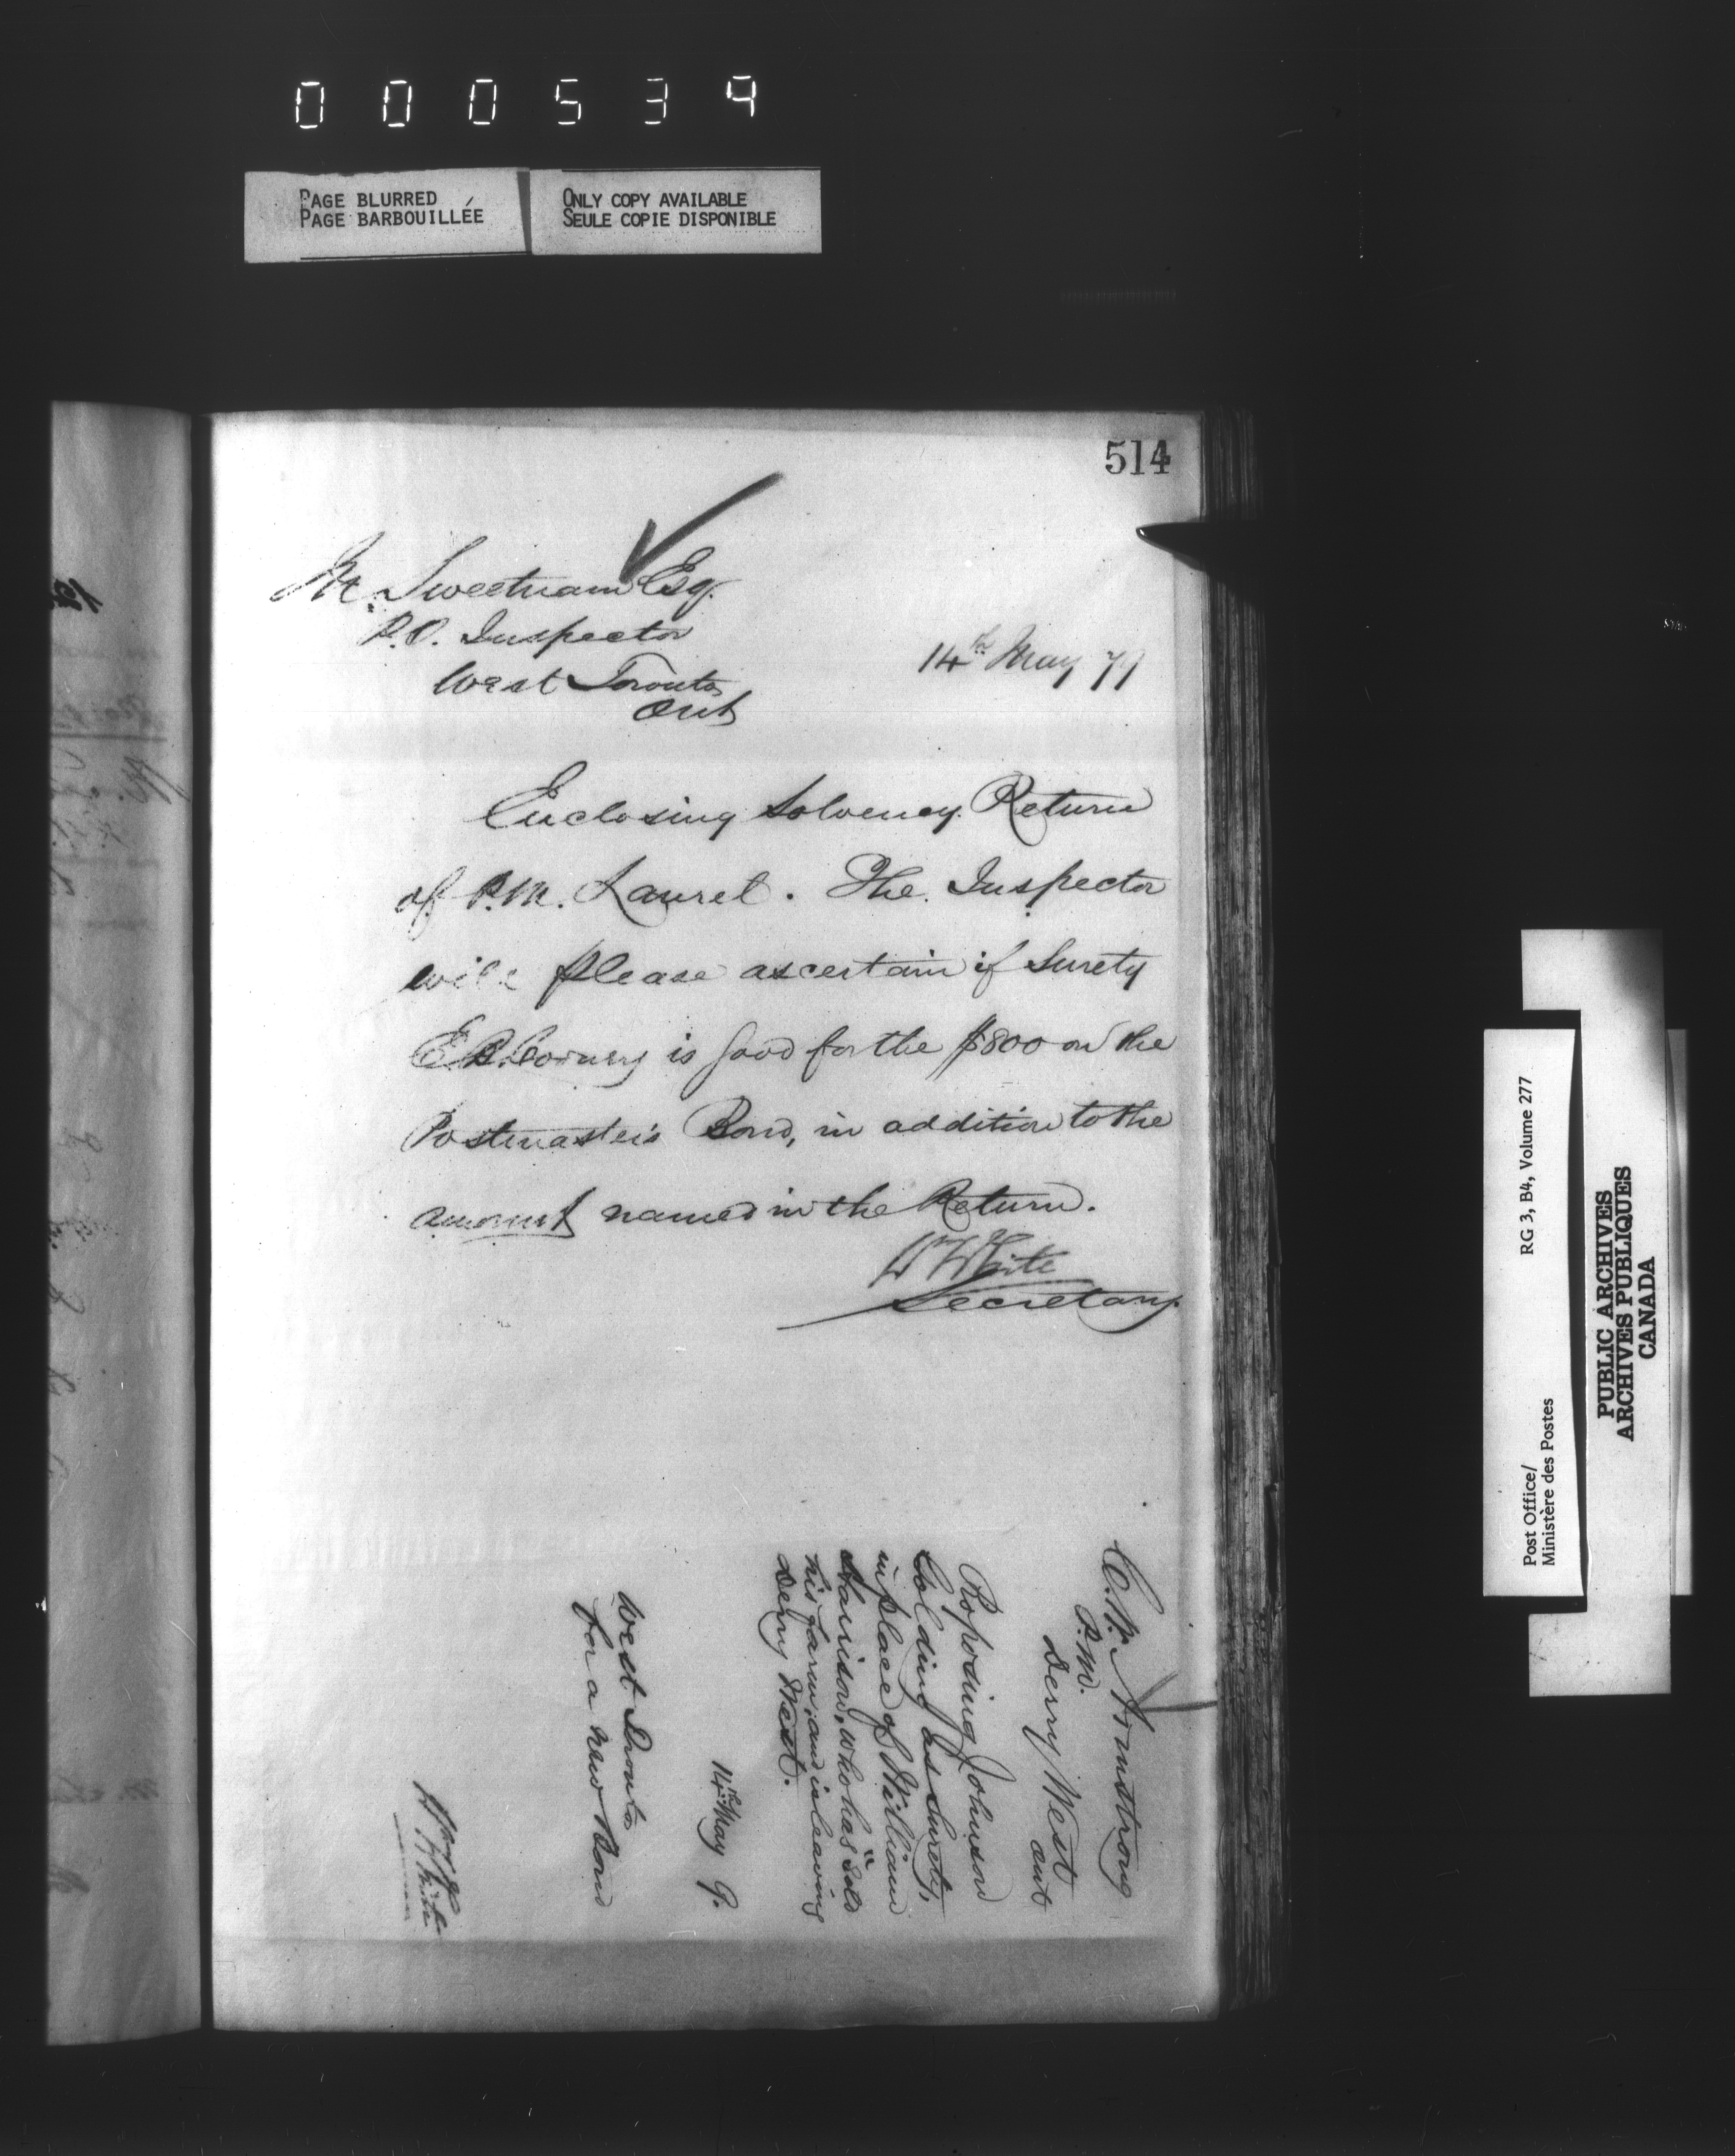 000534
PAGE BLURRED
PAGE BARBOUILLÉE
ONLY COPY AVAILABLE
SEULE COPIE DISPONIBLE
514
M. Sweetnam Esq.
P.O. Inspector
West Toronto
Ont
14th May 79
Enclosing Solvency Return
of P.M. Laurel. The Inspector
will please ascertain if Surety
is good for the $800 on the
Postmaster's Bond, in addition to the
amount named in the Return.
W White
Secretary
C. W. Armstrong
P.M.
Derry West
Ont
Proposing Johnson
Golding as Surety,
in place of William
Harrison, who has sold
his farm, and is leaving
Derry West.
14th May 9.
West Toronto
for a new Bond
W White
Post Office/
Ministère des Postes
RG 3, B4, Volume 277
PUBLIC ARCHIVES
ARCHIVES PUBLIQUES
CANADA